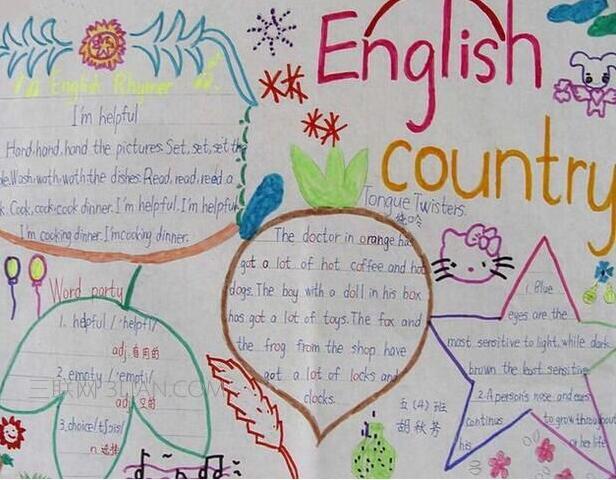 English
country
English Rhymer
I'm helpful
Hand, hand, hand the pictures. Set, set, set the
Wash, wash, wash the dishes. Read, read, read a
Cook, cook, cook dinner. I'm helpful. I'm helpful
I'm cooking dinner. I'm cooking dinner.
Word party
1. helpful
adj. 有用的
2. empty /'empti/
adj. 空的
3. choice /tʃɔis/
n. 选择
Tongue Twisters.
The doctor in orange has
got a lot of hot coffee and hot
dogs. The boy with a doll in his box
has got a lot of toys. The fox and
the frog from the shop have
got a lot of locks and
clocks.
五(4)班
胡秋芳
1. Blue
eyes are the
most sensitive to light, while dark
brown the least sensitive
2. A person's nose and ears
continus to grow throughout
his or her life
三联网 3LIAN.COM